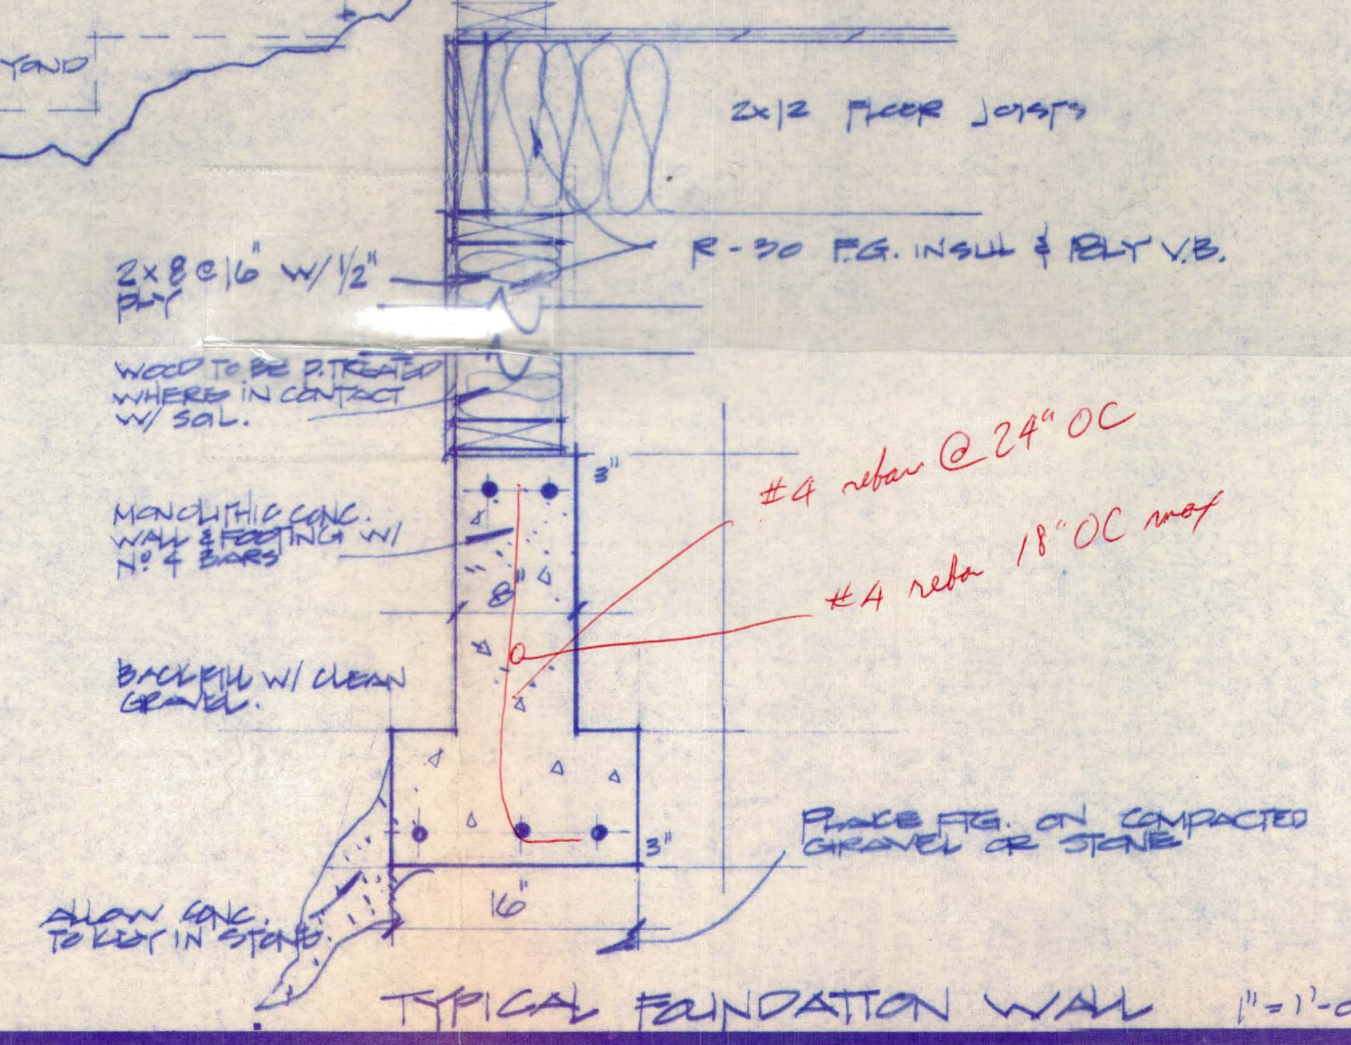 YOND
2x12 FLOOR JOISTS
R-30 F.G. INSUL & POLY V.B.
2x8 @ 16" W/ 1/2"
PLY
WOOD TO BE P.TREATED
WHERE IN CONTACT
W/ SOIL.
3"
#4 rebar @ 24" OC
MONOLITHIC CONC.
WALL & FOOTING W/
Nº 4 BARS
8"
#4 rebar 18" OC max
BACKFILL W/ CLEAN
GRAVEL.
PLACE FTG. ON COMPACTED
GRAVEL OR STONE
3"
16"
ALLOW CONC.
TO KEY IN STONE.
TYPICAL FOUNDATION WALL 1"=1'-0